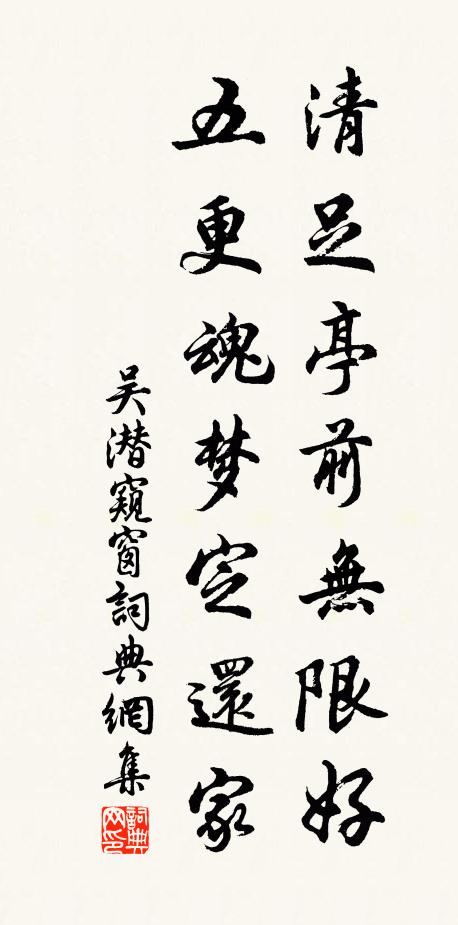 清足亭前無限好
五更魂梦定還家
吴潜窺窗詞典網集
詞典网印